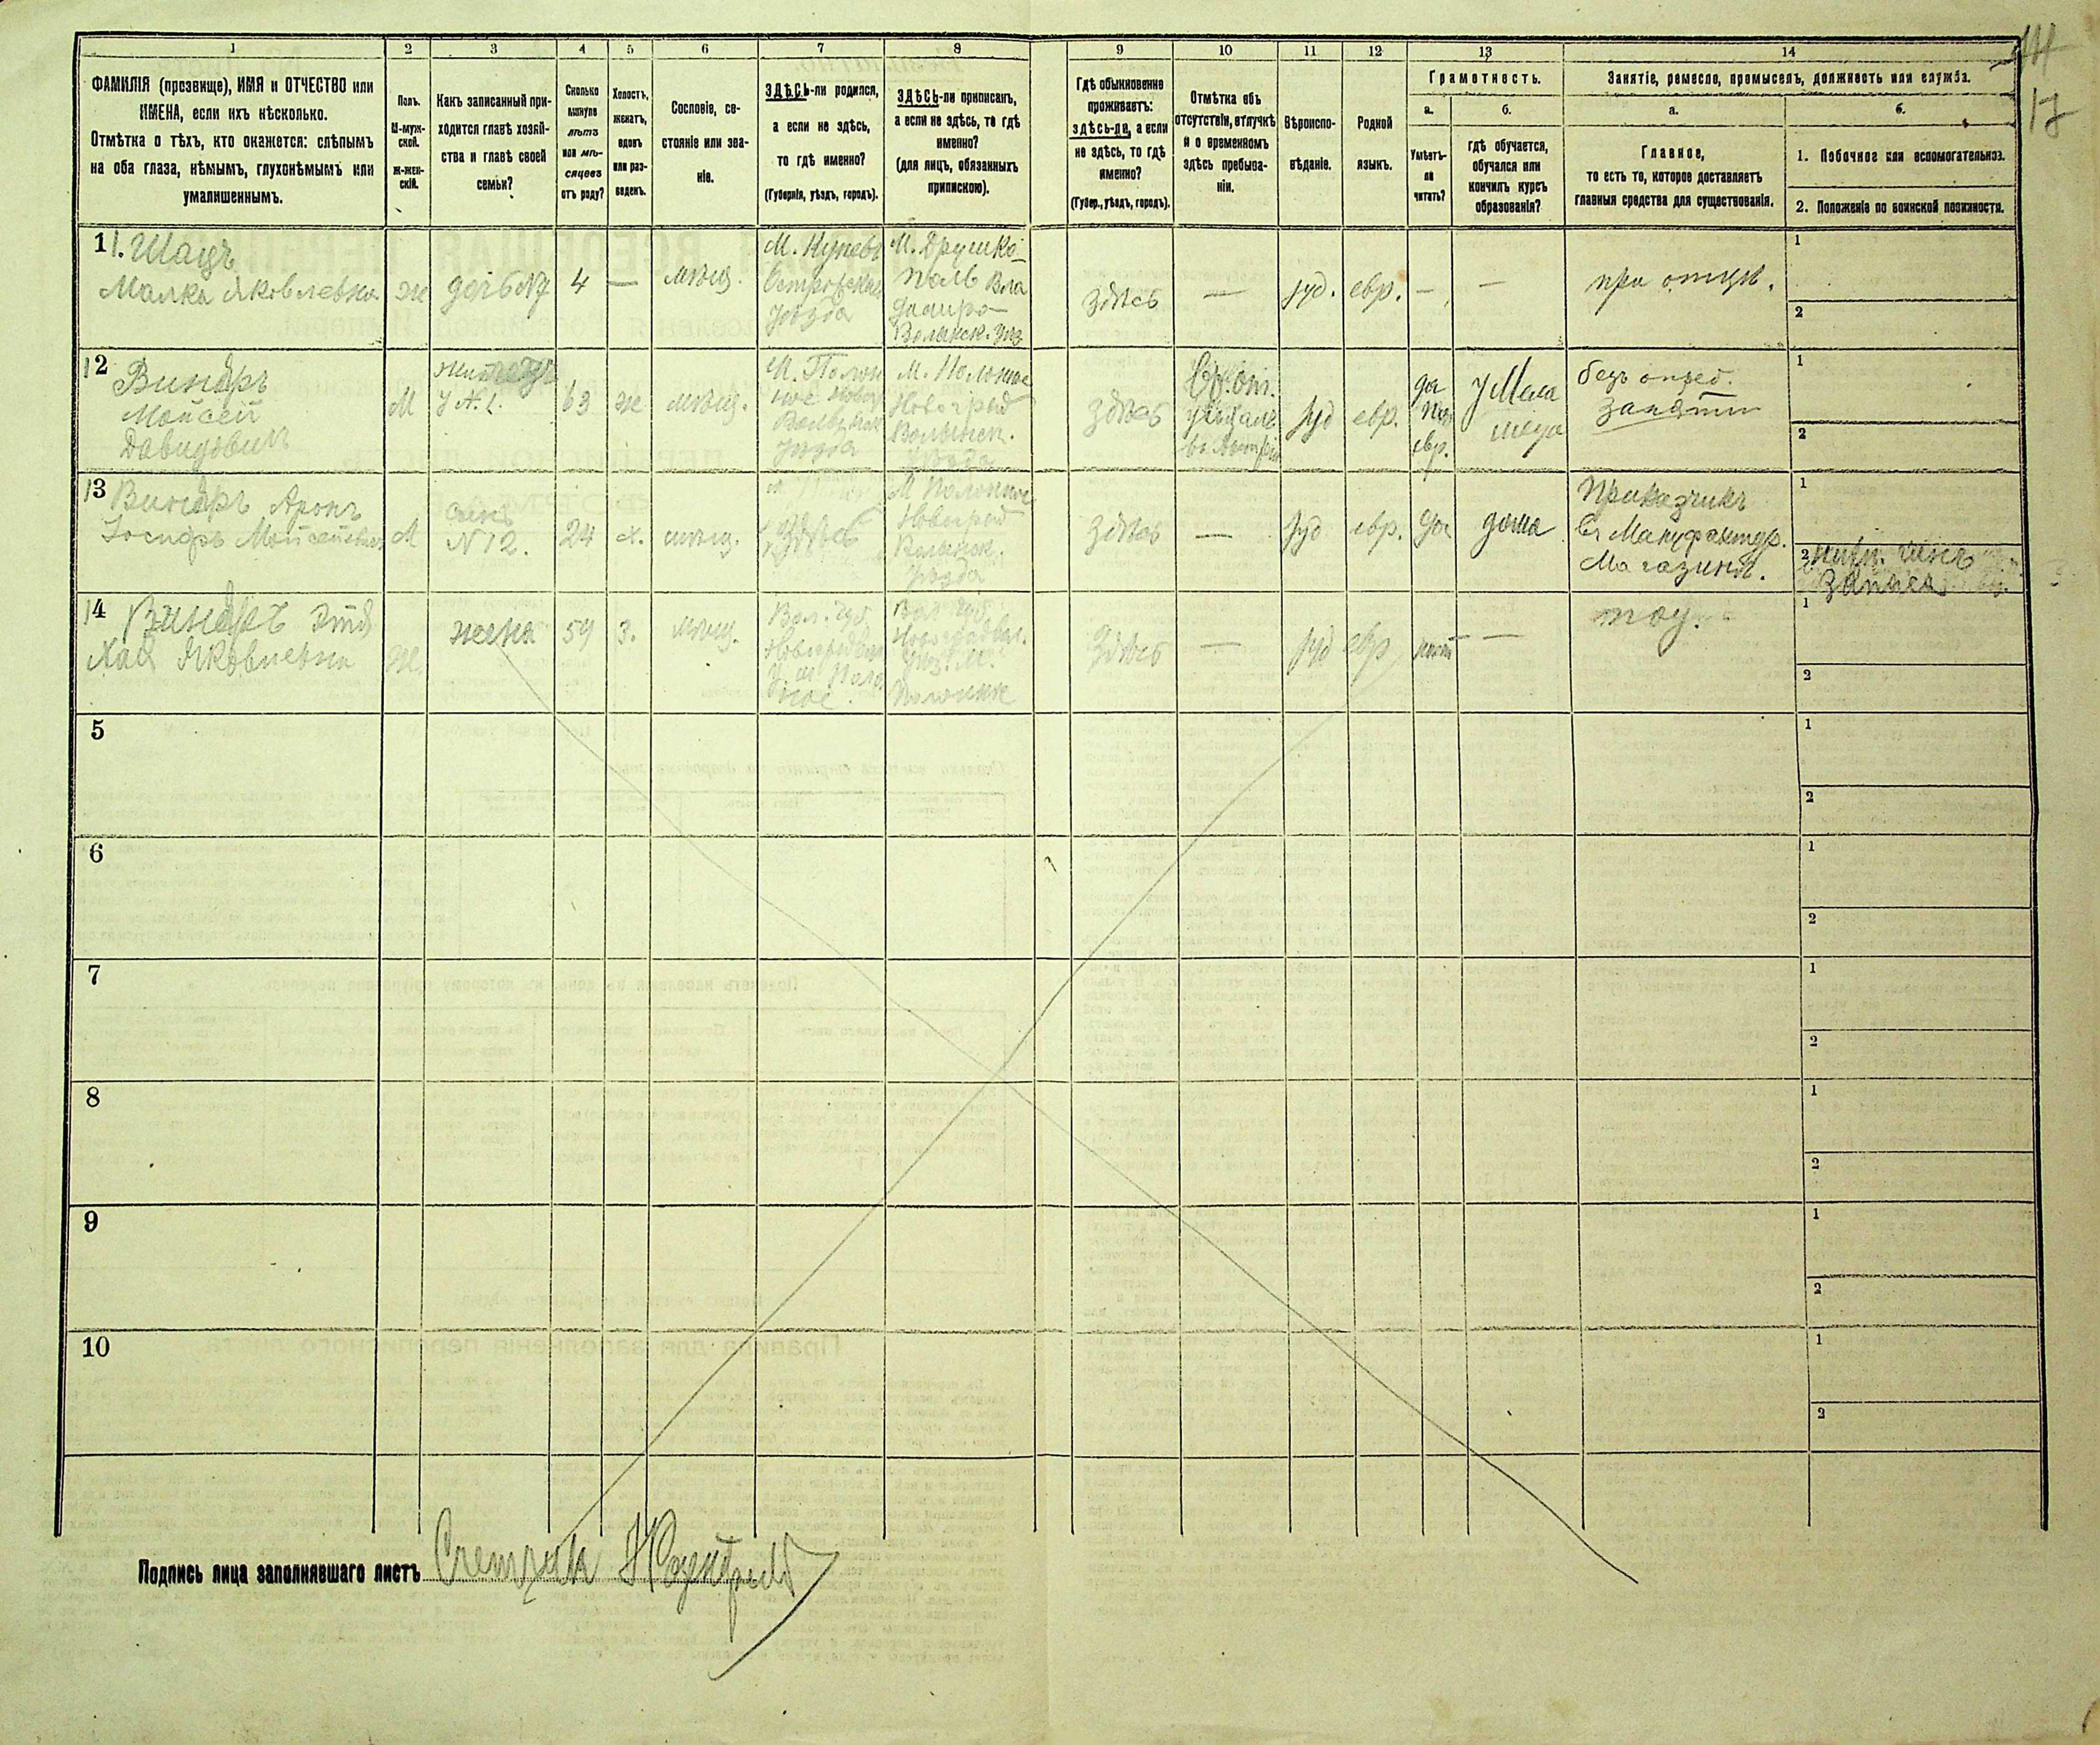 1 2 3 4 5 6 7 8 9 10 11 12 13 14
17
ФАМИЛІЯ (прозвище), ИМЯ и ОТЧЕСТВО или
ИМЕНА, если ихъ нѣсколько.
Отмѣтка о тѣхъ, кто окажется: слѣпымъ
на оба глаза, нѣмымъ, глухонѣмымъ или
умалишеннымъ.
Полъ.
М-муж-
ской.
Ж-жен-
скій.
Какъ записанный при-
ходится главѣ хозяй-
ства и главѣ своей
семьи?
Сколько
минуло
лѣтъ
или мѣ-
сяцевъ
отъ роду?
Холостъ,
женатъ,
вдовъ
или раз-
веденъ.
Сословіе, со-
стояніе или зва-
ніе.
ЗДѢСЬ-ли родился,
а если не здѣсь,
то гдѣ именно?
(Губернія, уѣздъ, городъ).
ЗДѢСЬ-ли приписанъ,
а если не здѣсь, то гдѣ
именно?
(для лицъ, обязанныхъ
припискою).
Гдѣ обыкновенно
проживаетъ:
здѣсь-ли, а если
не здѣсь, то гдѣ
именно?
(Губер., уѣздъ, городъ).
Отмѣтка объ
отсутствіи, отлучкѣ
и о временномъ
здѣсь пребыва-
ніи.
Вѣроиспо-
вѣданіе.
Родной
языкъ.
Грамотность.
а.
Умѣетъ-
ли
читать?
б.
гдѣ обучается,
обучался или
кончилъ курсъ
образованія?
Занятіе, ремесло, промыселъ, должность или служба.
а.
Главное,
то есть то, которое доставляетъ
главныя средства для существованія.
б.
1. Побочное или вспомогательное.
2. Положеніе по воинской повинности.
11. Шацъ
Малка Яковлевна
ж
дочь №7
4
—
мѣщ.
М. Куневъ
уѣзда
М. Дружко-
поль Вла
димиро-
Волынск. уѣз
здѣсь
—
іуд.
евр.
—
—
при отцѣ.
1
2
12
Винеръ
Мойсей
Давидовичъ
М
У №1.
63
ж
мѣщ.
М. Полон
ное Новгр
уѣзда
М. Полонное
Новоград
Волынск.
уѣзда
здѣсь
іуд
евр.
да
по
евр.
безъ опред.
занятій
1
2
13
Винеръ Аронъ
Іосифъ Мойсеевичъ
М
сынъ
№12.
24
х.
мѣщ.
здѣсь
М Полонное
Новоград
Волынск.
уѣзда
здѣсь
—
іуд
евр.
да
дома
Приказчикъ
въ Мануфактур.
Магазинѣ.
1
2
запаса
14
Хая Яковлевна
ж
жена
59
З.
мѣщ.
Вол. губ.
У. м Поло
ное
Вол губ
уѣз. М.
Полонное
здѣсь
—
іуд
евр
нѣтъ
—
1
2
5
1
2
6
1
2
7
1
2
8
1
2
9
1
2
10
1
2
Подпись лица заполнявшаго листъ Счетчикъ